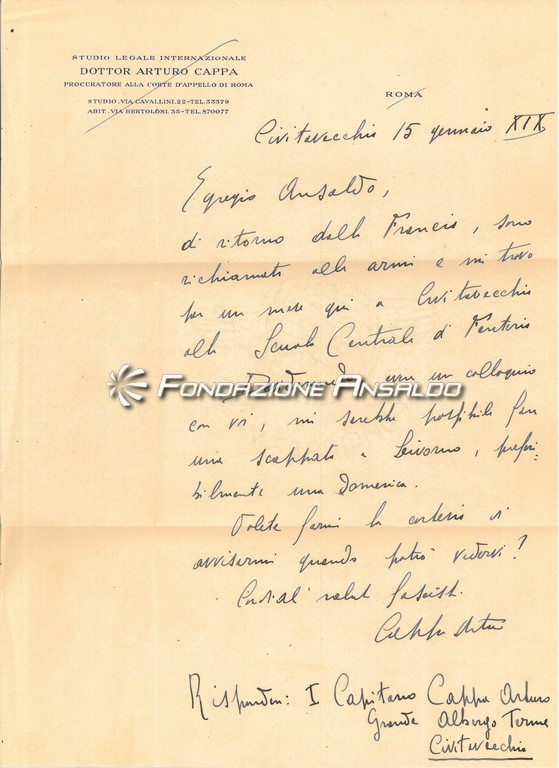 STUDIO LEGALE INTERNAZIONALE
DOTTOR ARTURO CAPPA
PROCURATORE ALLA CORTE D'APPELLO DI ROMA
STUDIO: VIA CAVALLINI, 22 - TEL. 33379
ABIT.: VIA BERTOLONI, 38 - TEL. 870077
ROMA
Civitavecchia 15 gennaio XIX
Egregio Ansaldo,
di ritorno dalla Francia, sono
richiamato alle armi e mi trovo
per un mese qui a Civitavecchia
alla Scuola Centrale di Fanteria
Desiderando avere un colloquio
con voi, mi sarebbe possibile fare
una scappata a Livorno, preferi-
bilmente una Domenica.
Volete farmi la cortesia di
avvisarmi quando potrò vedervi?
Cordiali saluti fascisti.
Cappa Arturo
FONDAZIONE ANSALDO
Rispondere: I Capitano Cappa Arturo
Grande Albergo Terme
Civitavecchia